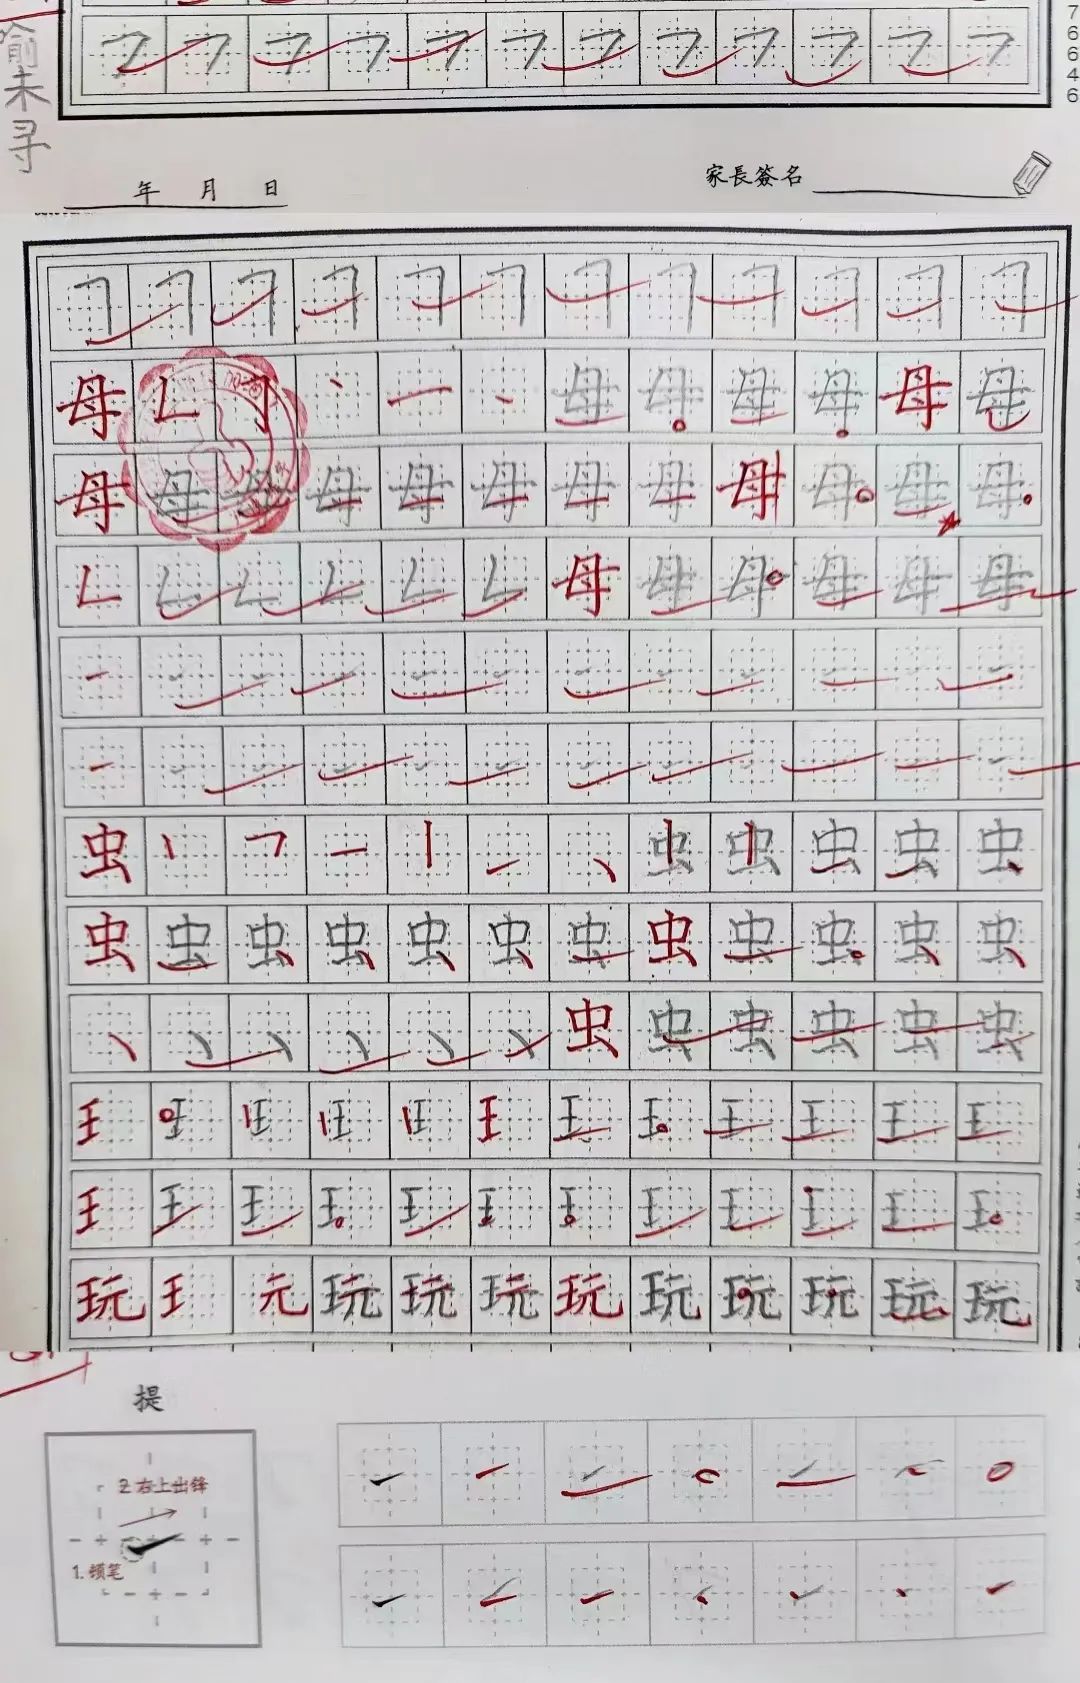 7
6
6
4
6
俞未寻
年 月 日
家長簽名
母 母 母 母 母 母 母
母 母 母 母 母 母 母 母 母 母 母 母
母 母 母 母 母 母
虫 虫 虫 虫 虫 虫
虫 虫 虫 虫 虫 虫 虫 虫 虫 虫 虫 虫
虫 虫 虫 虫 虫 虫
王 王 王 王 王 王 王 王 王 王 王 王
王 王 王 王 王 王 王 王 王 王 王 王
玩 王 元 玩 玩 玩 玩 玩 玩 玩 玩 玩
提
2.右上出锋
1.顿笔